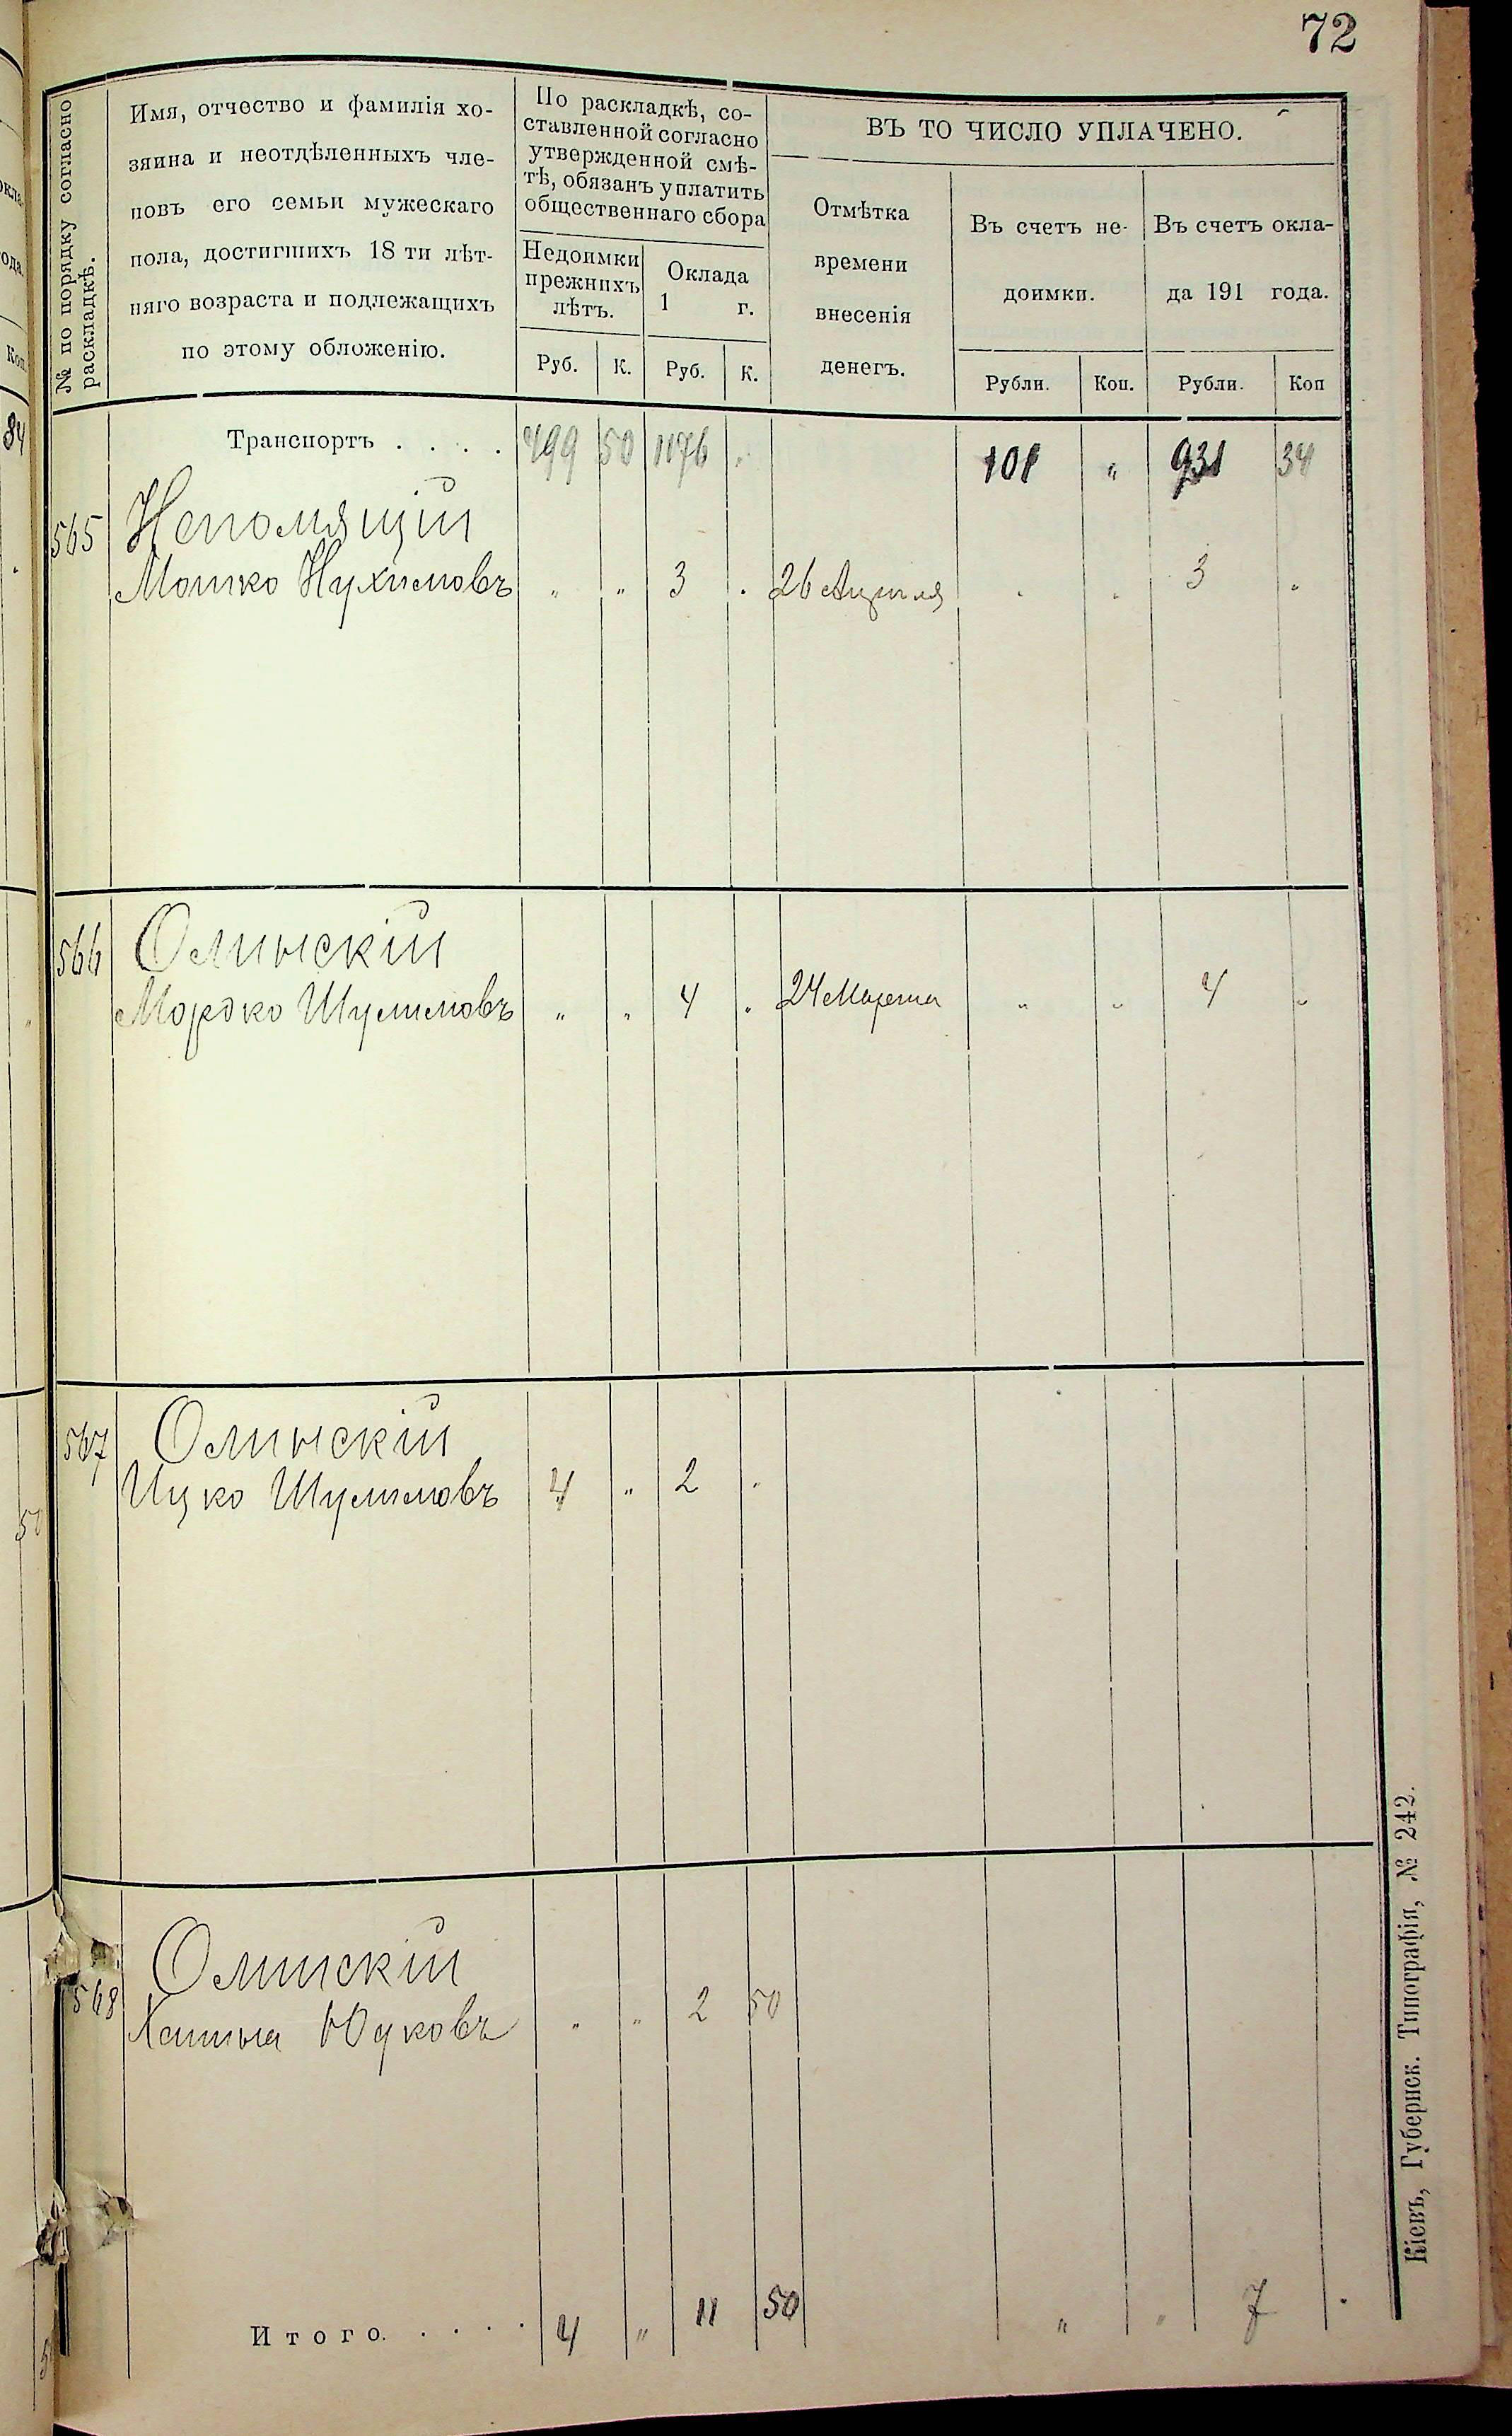 72
№ по порядку согласно раскладкѣ.
Имя, отчество и фамилія хо-
зяина и неотдѣленныхъ чле-
новъ его семьи мужескаго
пола, достигшихъ 18 ти лѣт-
няго возраста и подлежащихъ
по этому обложенію.
По раскладкѣ, со-
ставленной согласно
утвержденной смѣ-
тѣ, обязанъ уплатить
общественнаго сбора
Недоимки
прежнихъ
лѣтъ.
Оклада
1 г.
Руб. К. Руб. К.
ВЪ ТО ЧИСЛО УПЛАЧЕНО.
Отмѣтка
времени
внесенія
денегъ.
Въ счетъ не-
доимки.
Въ счетъ окла-
да 191 года.
Рубли. Коп. Рубли. Коп
Транспортъ . . . . 499 50 1176 . 101 " 931 34
565 Непомящій
Мошко Нухимовъ " " 3 . 26 Апреля . . 3 .
566 Олинскій
Мордко Шулимовъ " " 4 . 24 Марта " " 4 "
567 Олинскій
Ицко Шулимовъ 4 " 2 "
568 Олинскій
Юдковъ " " 2 50
Итого. . . . . 4 " 11 50 " " 7 .
Кіевъ, Губернск. Типографія, № 242.
84
50